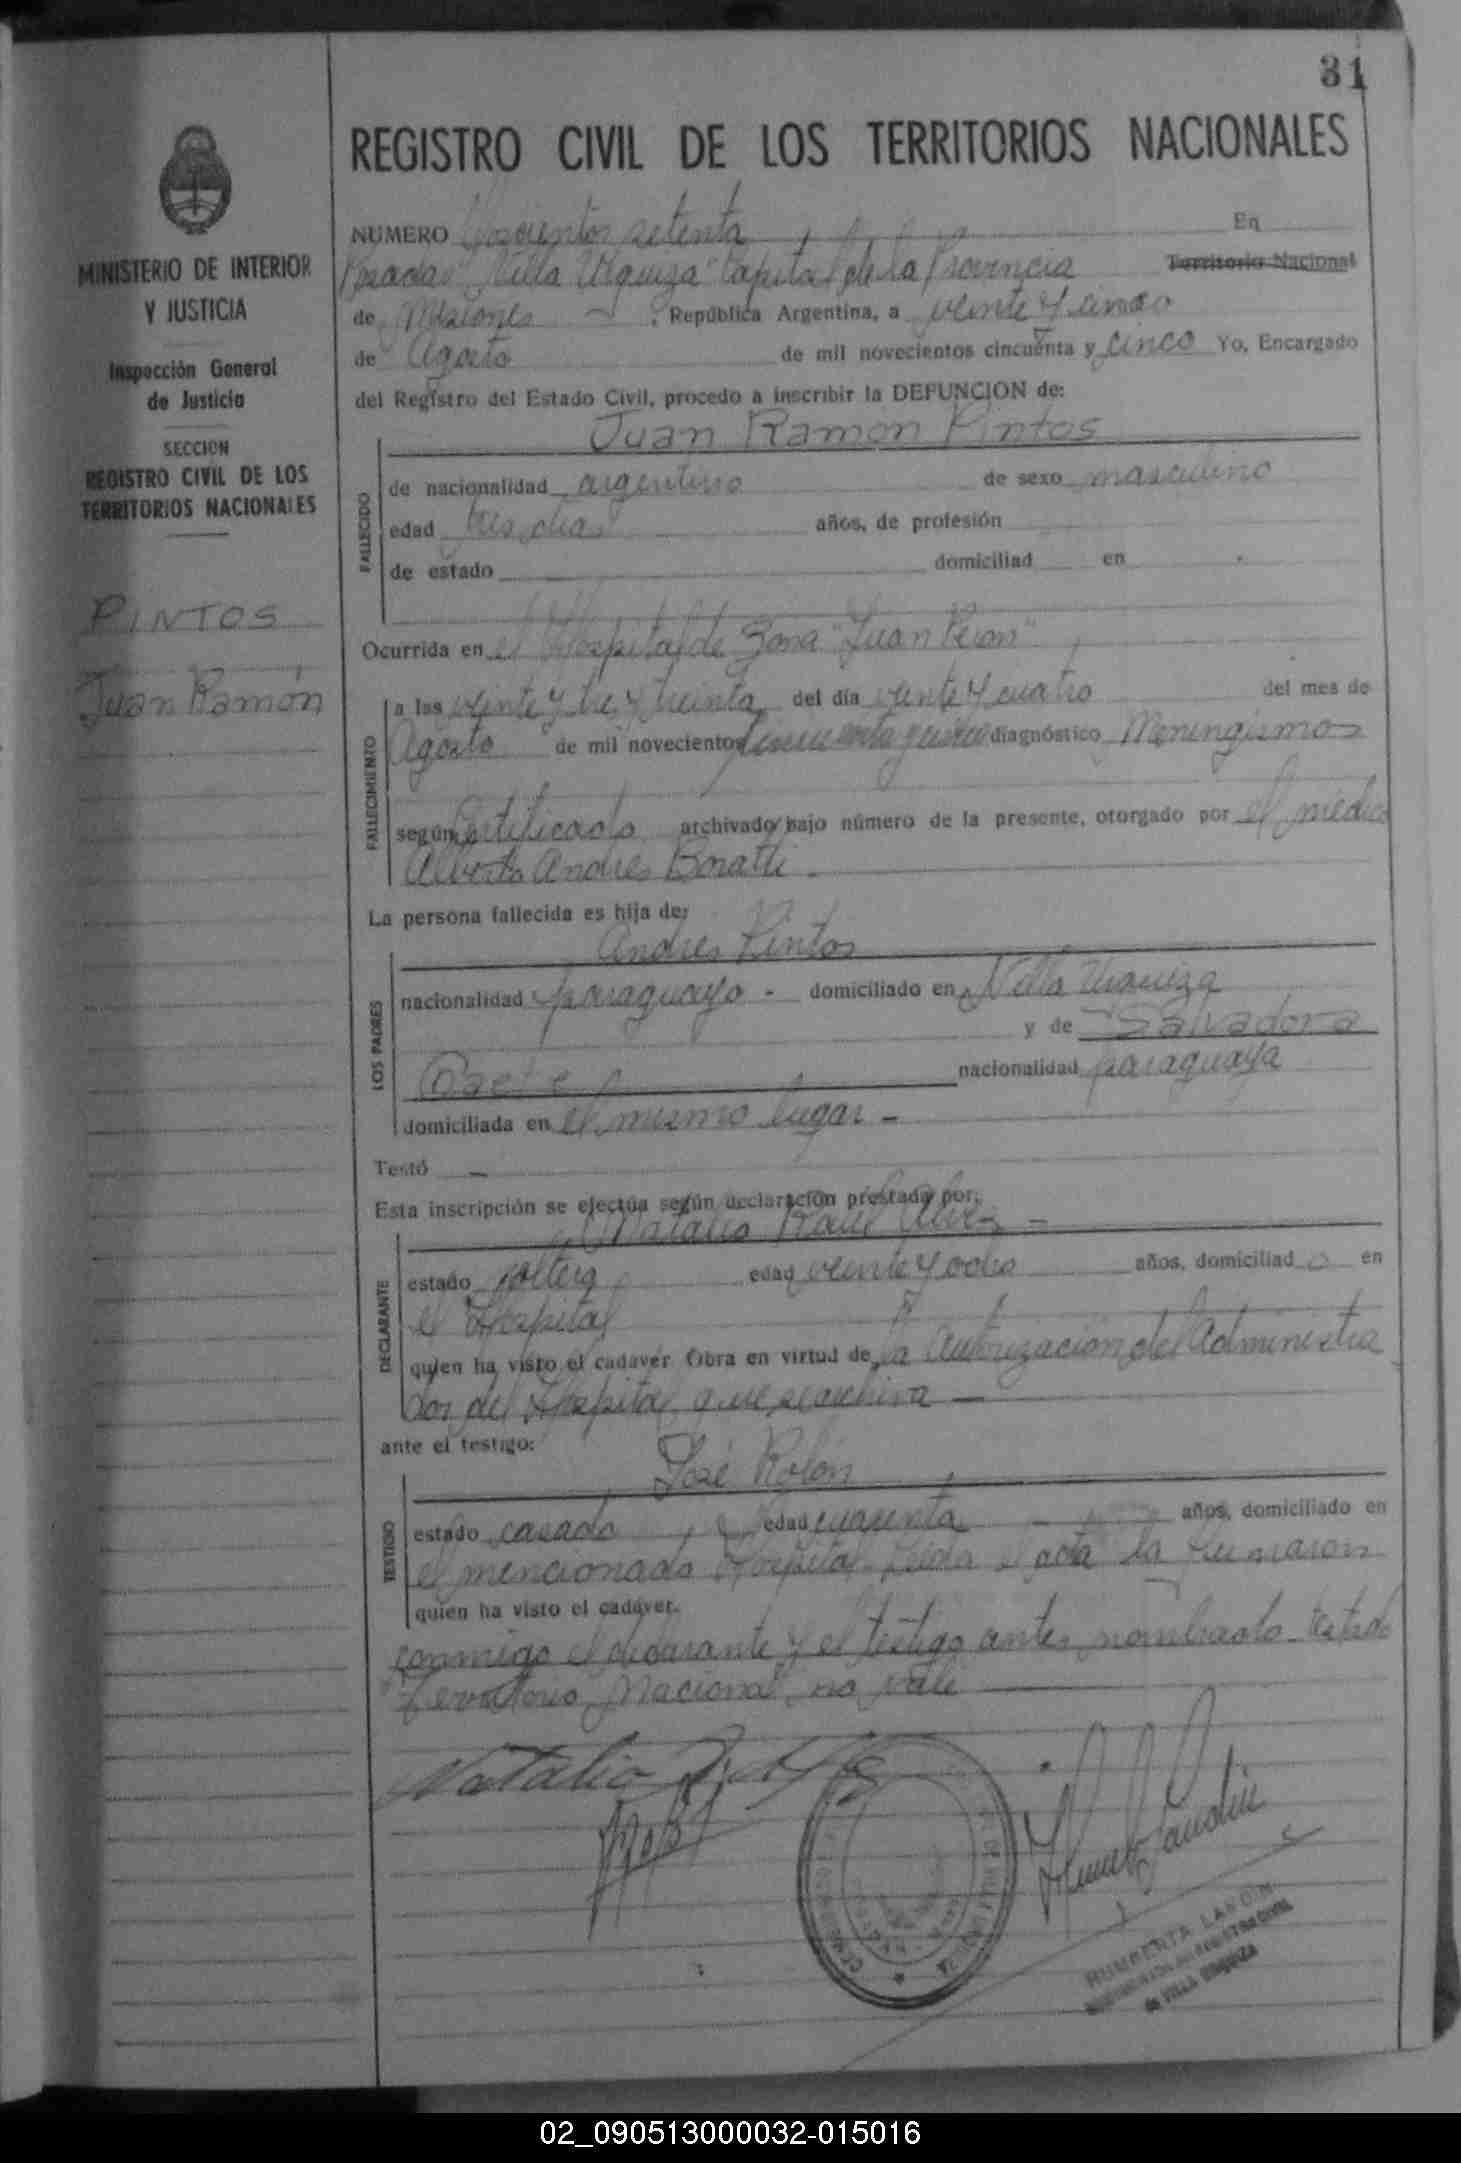 31
REGISTRO CIVIL DE LOS TERRITORIOS NACIONALES
MINISTERIO DE INTERIOR
Y JUSTICIA
Inspección General
de Justicia
SECCION
REGISTRO CIVIL DE LOS
TERRITORIOS NACIONALES
PINTOS
Juan Ramón
NUMERO Doscientos setenta En
Posadas "Villa Urquiza" Capital de la Provincia Territorio Nacional
de Misiones, República Argentina, a veinte y cinco
de Agosto de mil novecientos cincuenta y cinco Yo, Encargado
del Registro del Estado Civil, procedo a inscribir la DEFUNCION de:
Juan Ramon Pintos
FALLECIDO
de nacionalidad argentino de sexo masculino
edad tres dias años, de profesión
de estado domiciliad en
Ocurrida en el Hospital de Zona "Juan Perón"
FALLECIMIENTO
a las veinte y tre y treinta del día veinte y cuatro del mes de
Agosto de mil novecientos cincuenta y cinco diagnóstico Meningismo
según Certificado archivado bajo número de la presente, otorgado por el médico
Alberto Andres
La persona fallecida es hija de:
Andres Pintos
LOS PADRES
nacionalidad paraguayo - domiciliado en Villa Urquiza
y de Salvadora
nacionalidad paraguaya
domiciliada en el mismo lugar -
Testó -
Esta inscripción se efectúa según declaración prestada por:
Natalio Raul
DECLARANTE
estado soltero edad veinte y ocho años, domiciliado en
el Hospital
quien ha visto el cadáver Obra en virtud de la Autorización del Administra
dor del Hospital que se archiva -
ante el testigo:
José Rolón
TESTIGO
estado casado edad cuarenta años, domiciliado en
el mencionado Hospital Leída el acta la firmaron
quien ha visto el cadáver.
conmigo el declarante y el testigo antes nombrado testado
"Territorio Nacional" no vale
Natalio
HUMBERTA LANDIN
de VILLA URQUIZA
02_090513000032-015016